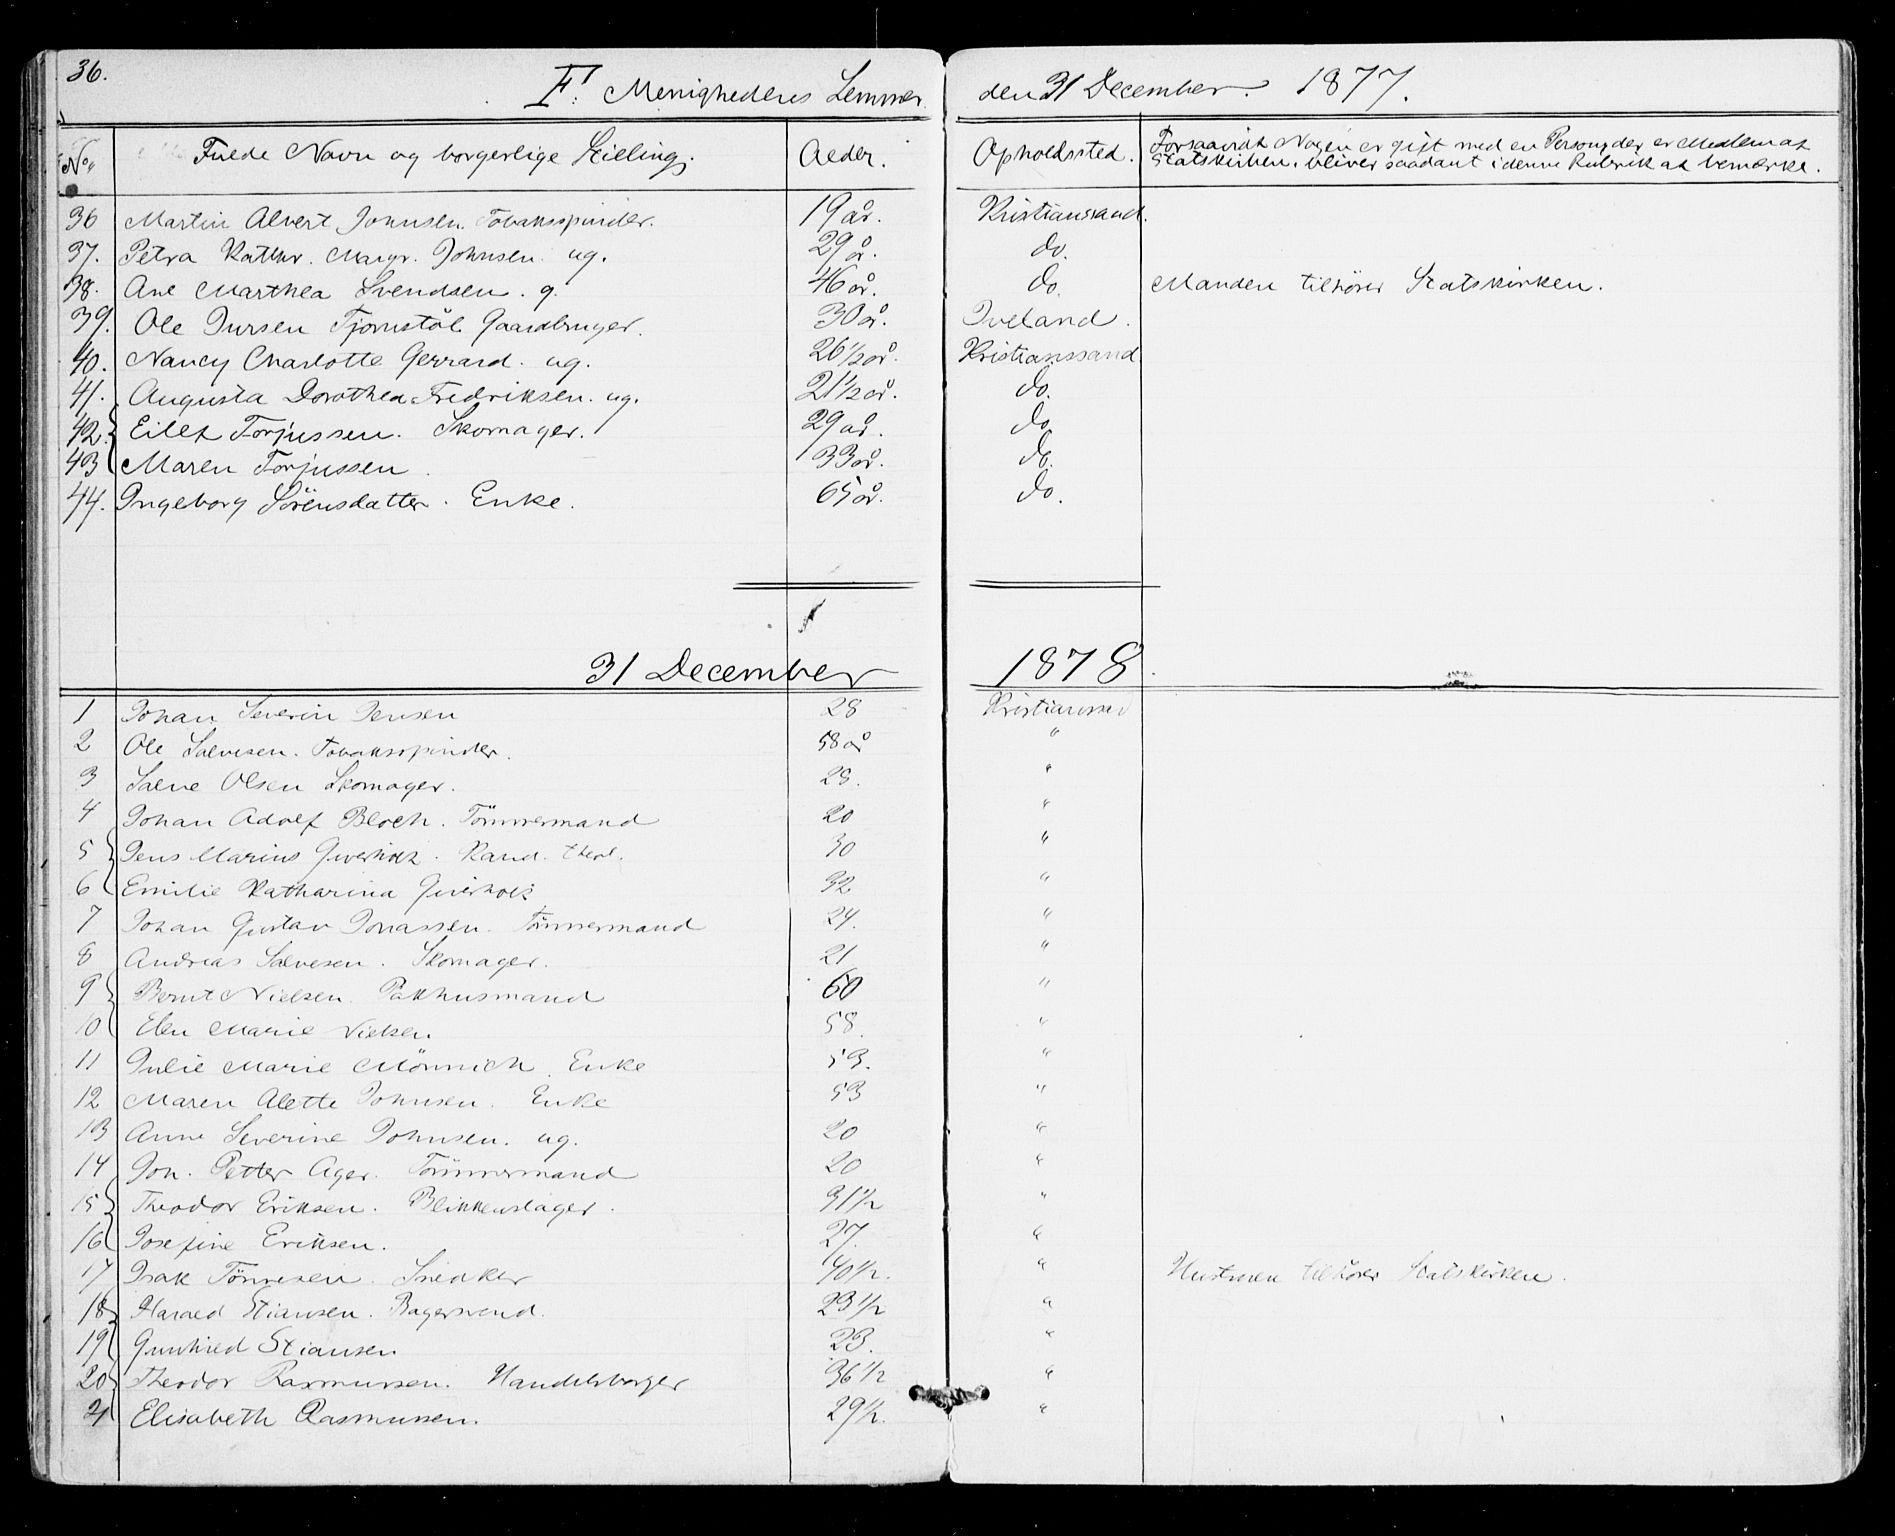 36.
F. Menighedens Lemmer den 31 December. 1877.
No. Fulde Navn og borgerlige Stilling. Alder. Opholdssted. Forsaavidt Nogen er gift med en Person, der er Medlem af
Statskirken, bliver saadant i denne Rubrik at bemærke.
36 Martin Alvert Johnsen. Tobaksspinder. 19 år. Kristianssand.
37. Petra Kathr. Margr. Johnsen. ug. 29 år. do.
38. Ane Marthea Svendsen. g. 46 år. do. Manden tilhører Statskirken.
39. Ole Jursen Tjomstøl. Gaardbruger. 30 år. Iveland.
40. Nancy Charlotte Gerrard. ug. 26 1/2 år. Kristianssand
41. Augusta Dorothea Fredriksen. ug. 21 1/2 år. do.
42. Eilef Torjussen. Skomager. 29 år. do.
43 Maren Torjussen. 33 år. do.
44. Ingeborg Sörensdatter. Enke. 65 år. do.
31 December 1878.
1 Johan Severin Jensen 28 Kristianssand
2 Ole Salvesen. Tobaksspinder. 58 år "
3 Salve Olsen Skomager. 28. "
4 Johan Adolf Bloch. Tömmermand 20 "
5 Jens Marius Giverholt. Kand. theol. 30 "
6 Emilie Katharina Giverholt 32 "
7 Johan Gustav Jonassen. Tömmermand 24. "
8 Andreas Salvesen. Skomager. 21 "
9 Bernt Nielsen. Pakhusmand 60 "
10 Elen Marie Nielsen. 58. "
11 Julie Marie Mönnich. Enke 53. "
12 Maren Alette Johnsen. Enke 53 "
13 Anne Severine Johnsen. ug. 20 "
14 Joh. Petter Ager. Tömmermand 20 "
15 Theodor Eriksen. Blikkenslager. 31 1/2 "
16 Josefine Eriksen. 27. "
17 Isak Tönnesen. Snedker 40 1/2. " Hustruen tilhører Statskirken.
18 Harald Stiansen. Bagersvend. 23 1/2 "
19 Gunhild Stiansen 23. "
20 Theodor Rasmussen. Handelsborger 36 1/2 "
21 Elisabeth Rasmussen. 29 1/2. "